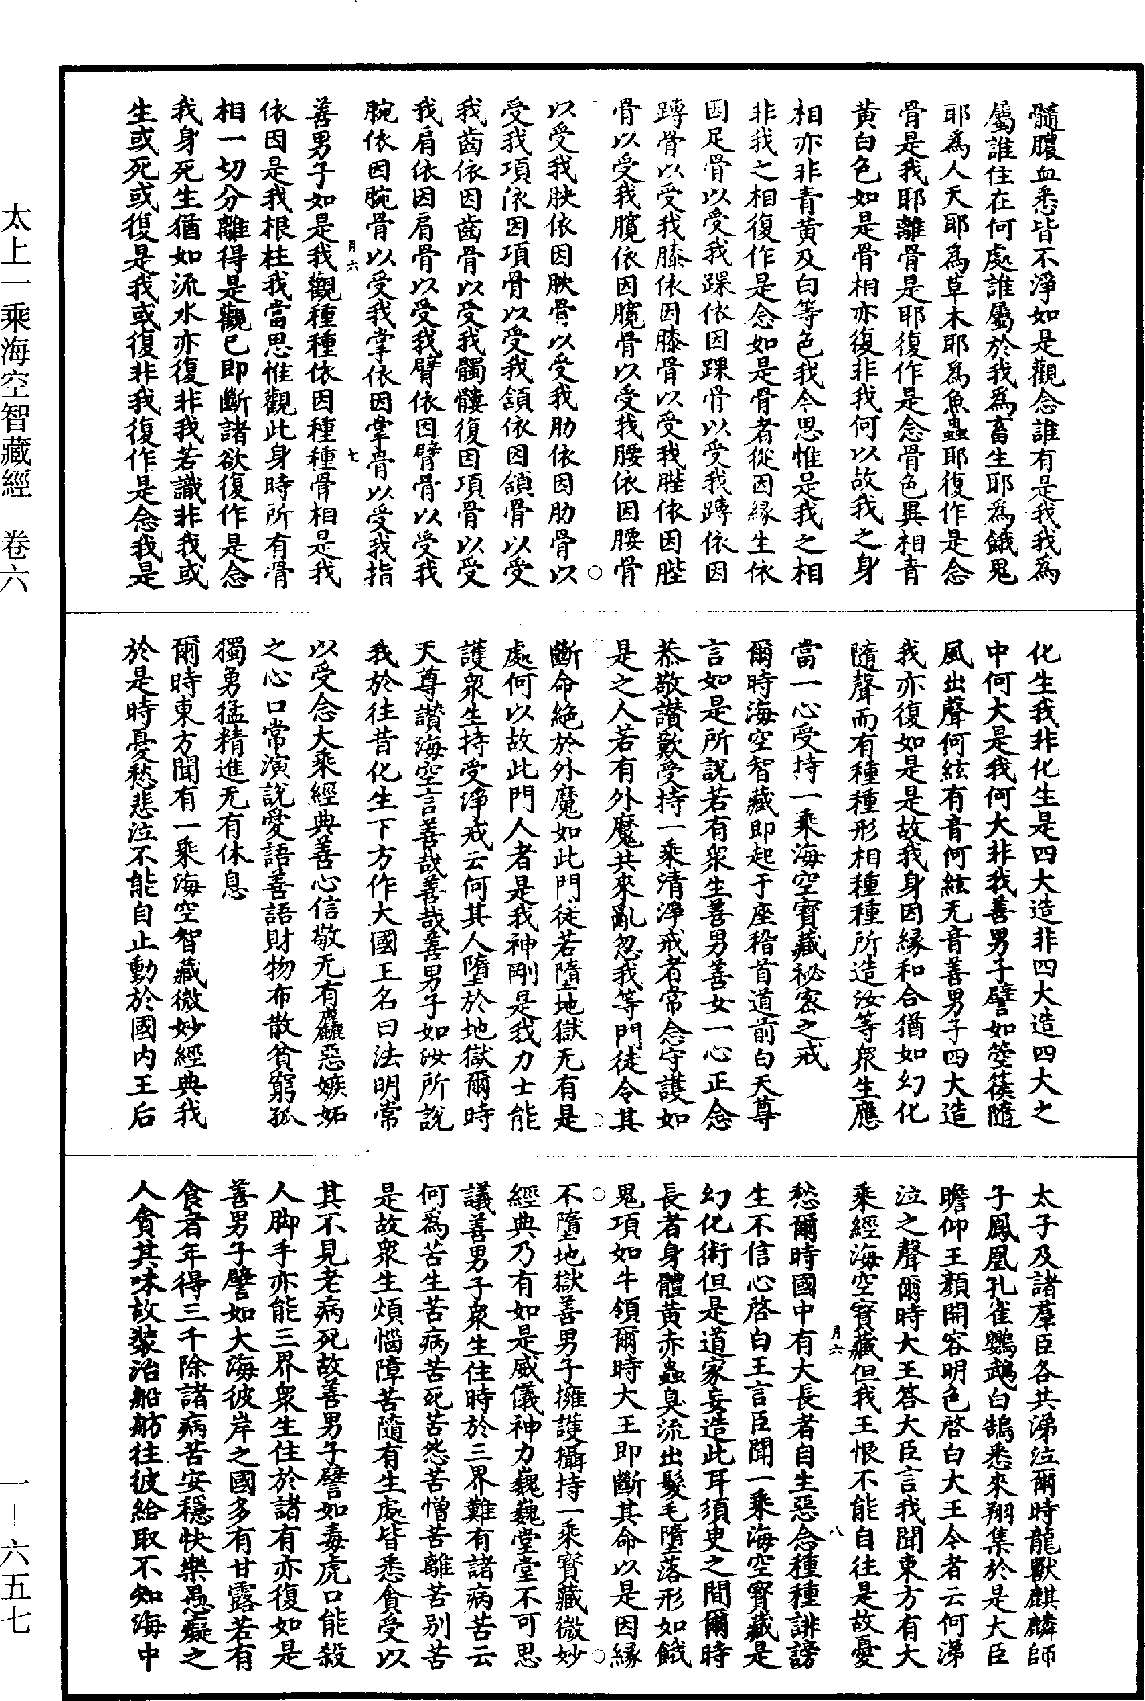 髓膿血悉皆不淨如是觀念誰有是我我為
屬誰住在何處誰屬於我為畜生耶為餓鬼
耶為人天耶為草木耶為魚蟲耶復作是念
骨是我耶離骨是耶復作是念骨色異相青
黃白色如是骨相亦復非我何以故我之身
相亦非青黃及白等色我今思惟是我之相
非我之相復作是念如是骨者從因緣生依
因足骨以受我踝依因踝骨以受我䏝依因
䏝骨以受我膝依因膝骨以受我䏶依因䏶
骨以受我臗依因臗骨以受我腰依因腰骨
以受我胦依因胦骨以受我肋依因肋骨以
受我項依因項骨以受我頷依因頷骨以受
我齒依因齒骨以受我髑髏復因項骨以受
我肩依因肩骨以受我臂依因臂骨以受我
腕依因腕骨以受我掌依因掌骨以受我指
善男子如是我觀種種依因種種骨相是我
依因是我根柱我當思惟觀此身時所有骨
相一切分離得是觀已即斷諸欲復作是念
我身死生猶如流水亦復非我若識非我或
生或死或復是我或復非我復作是念我是
月六 七
化生我非化生是四大造非四大造四大之
中何大是我何大非我善男子譬如箜篌隨
風出聲何絃有音何絃无音善男子四大造
我亦復如是是故我身因緣和合猶如幻化
隨聲而有種種形相種種所造汝等眾生應
當一心受持一乘海空寶藏祕密之戒
爾時海空智藏即起于座稽首道前白天尊
言如是所說若有眾生善男善女一心正念
恭敬讚歎受持一乘清淨戒者常念守護如
是之人若有外魔共來亂忽我等門徒令其
斷命絕於外魔如此門徒若墮地獄无有是
處何以故此門人者是我神剛是我力士能
護眾生持受淨戒云何其人墮於地獄爾時
天尊讚海空言善哉善哉善男子如汝所說
我於往昔化生下方作大國王名曰法明常
以受念大乘經典善心信敬无有麤惡嫉妬
之心口常演說愛語善語財物布散貧窮孤
獨勇猛精進无有休息
爾時東方聞有一乘海空智藏微妙經典我
於是時憂愁悲泣不能自止動於國內王后
太子及諸羣臣各共涕泣爾時龍獸麒麟師
子鳳凰孔雀鸚鵡白鵠悉來翔集於是大臣
瞻仰王顏開容明色啓白大王今者云何涕
泣之聲爾時大王答大臣言我聞東方有大
乘經海空寶藏但我王恨不能自往是故憂
愁爾時國中有大長者自生惡念種種誹謗
生不信心啓白王言臣聞一乘海空寶藏是
幻化術但是道家妄造此耳須臾之間爾時
長者身體黃赤蟲臭流出髮毛墮落形如餓
鬼項如牛領爾時大王即斷其命以是因緣
不墮地獄善男子擁護攝持一乘寶藏微妙
經典乃有如是威儀神力巍巍堂堂不可思
議善男子眾生住時於三界難有諸病苦云
何為苦生苦病苦死苦怨苦憎苦離苦別苦
是故眾生煩惱障苦隨有生處皆悉貪受以
其不見老病死故善男子譬如毒虎口能殺
人脚手亦能三界眾生住於諸有亦復如是
善男子譬如大海彼岸之國多有甘露若有
食者年得三千除諸病苦安穩快樂愚癡之
人貪其味故裝治船舫往彼給取不知海中
月六 八
太上一乘海空智藏經 卷六
一—六五七